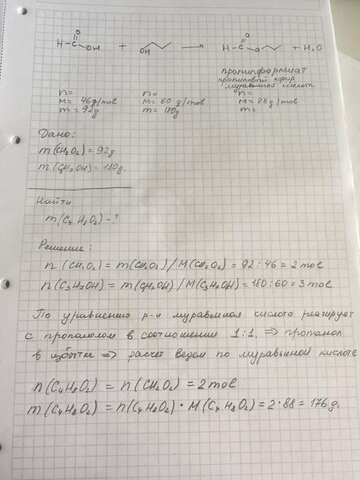 H-C(=O)-OH + OH → H-C(=O)-O + H₂O
пропилформиат
пропиловый эфир
муравьиной кислоты
n= n= n=
M= 46g/mol M= 60 g/mol M= 88g/mol
m= 92g m= 180g m=
Дано:
m(CH₂O₂)=92g
m(C₃H₇OH)=180g
Найти
m(C₄H₈O₂)-?
Решение:
n(CH₂O₂) = m(CH₂O₂)/M(CH₂O₂) = 92:46 = 2mol
n(C₃H₇OH) = m(C₃H₇OH)/M(C₃H₇OH) = 180:60 = 3mol
По уравнению р-я муравьиная кислота реагирует
с пропанолом в соотношении 1:1, ⇒ пропанол
в избытке ⇒ расчет ведем по муравьиной кислоте
n(C₄H₈O₂) = n(CH₂O₂) = 2mol
m(C₄H₈O₂) = n(C₄H₈O₂)·M(C₄H₈O₂) = 2·88 = 176g.